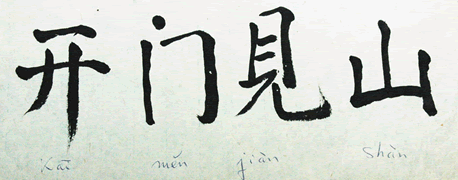 开门見山
Kāi mén jiàn shān